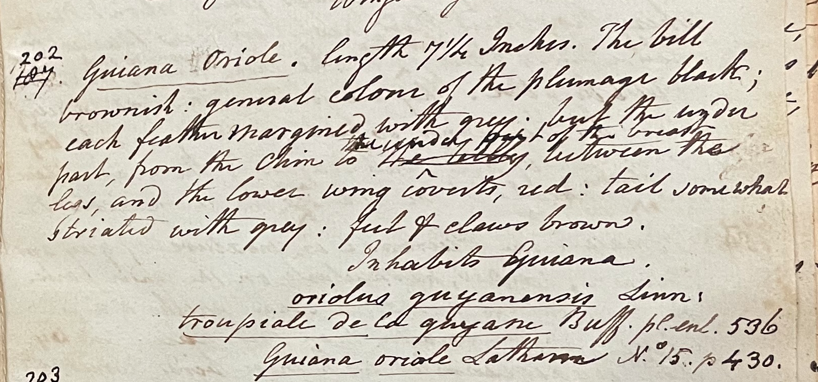 202
107. Guiana Oriole. length 7 1/4 Inches. The bill
brownish: general colour of the plumage black;
each feather margined with grey: but the under
part, from the Chin to the belly, the under part of the breast between the
legs, and the lower wing coverts, red: tail somewhat
striated with grey: feet & claws brown.
Inhabits Guiana.
oriolus guyanensis Linn:
troupiale de la guyane Buff. pl. enl. 536
Guiana oriole Latham No. 15. p 430.
203